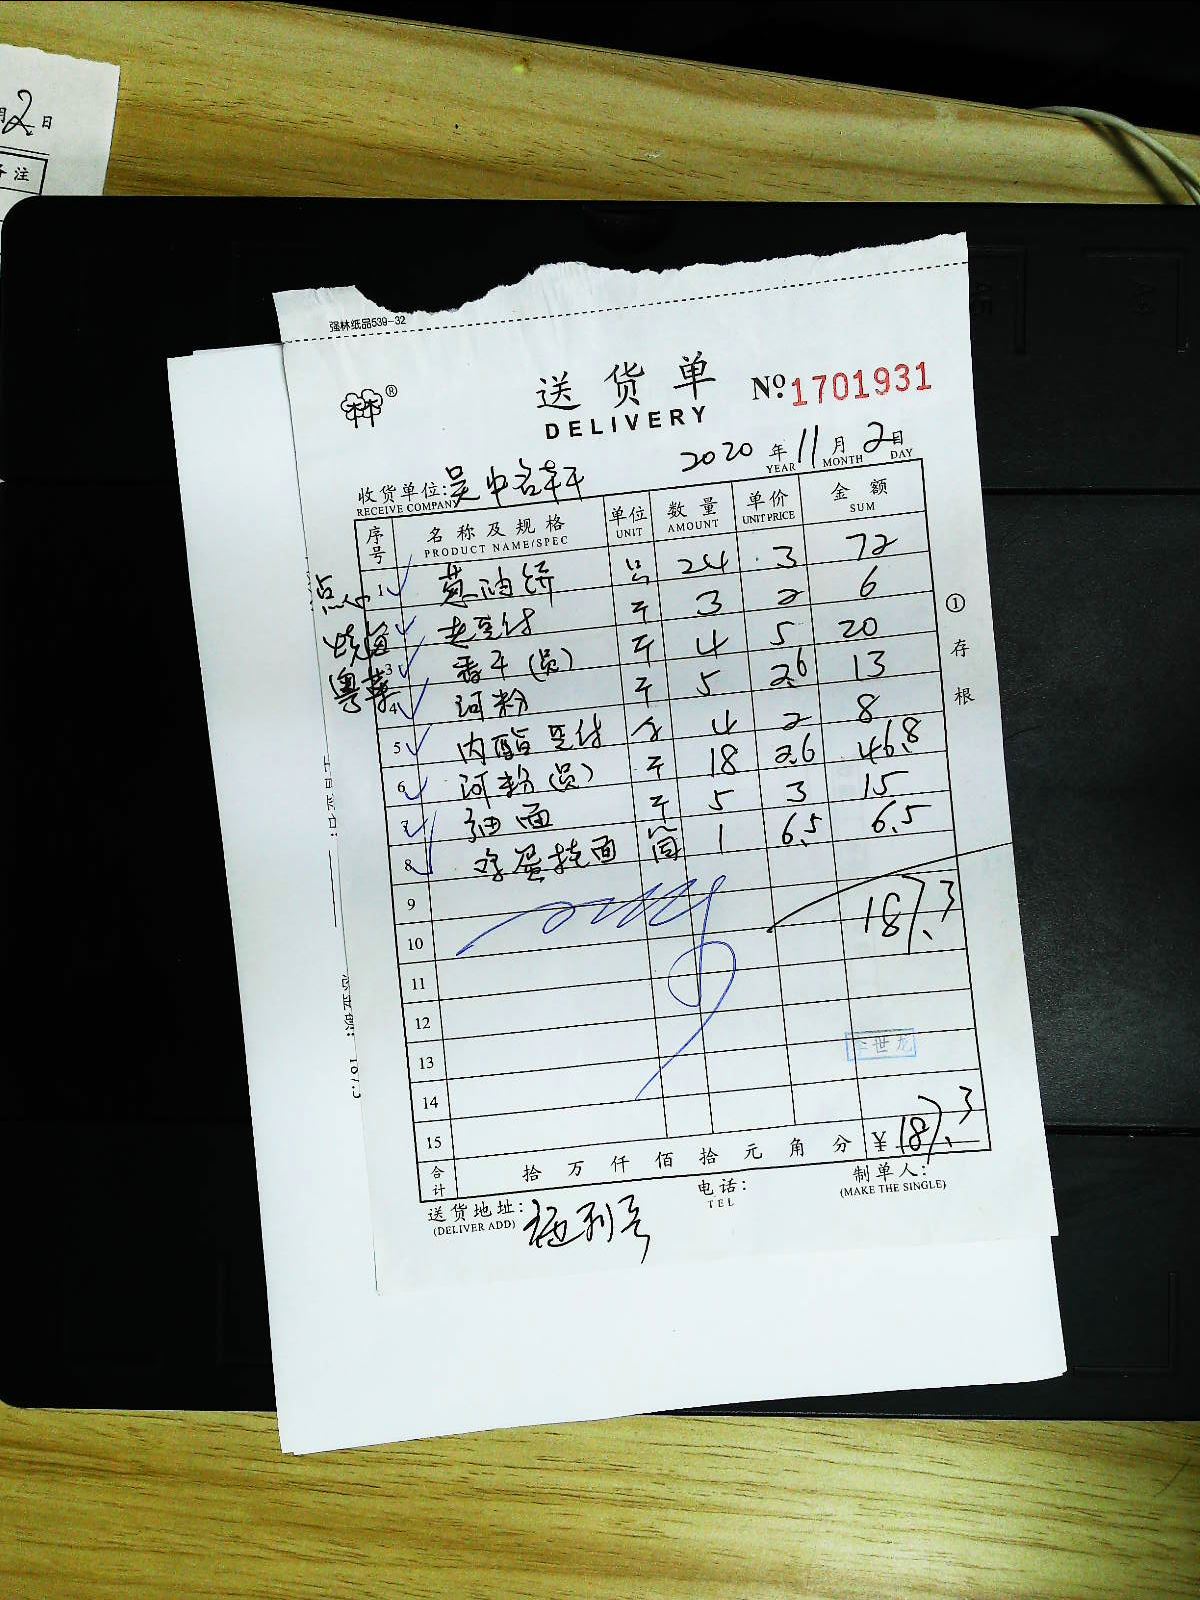 2日
备注
强林纸品539-32
送货单
DELIVERY
№ 1701931
2020年11月2日
YEAR MONTH DAY
收货单位: 吴中名轩
RECEIVE COMPANY
序号 名称及规格 单位 数量 单价 金额
PRODUCT NAME/SPEC UNIT AMOUNT UNIT PRICE SUM
点心 1 葱油饼 24 3 72
老豆付 斤 3 2 6
粤菜 3 香干(员) 斤 4 5 20
4 河粉 斤 5 2.6 13
5 内酯豆付 4 2 8
6 河粉(员) 斤 18 2.6 46.8
7 细面 斤 5 3 15
8 鸡蛋挂面 筒 1 6.5 6.5
9
187.3
10
11
12
13
李世龙
14
15
合计 拾万仟佰拾元角分 ¥187.3
① 存根
送货地址:
(DELIVER ADD)
电话:
TEL
制单人:
(MAKE THE SINGLE)